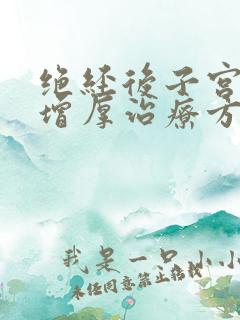 绝经後子宫
增厚治療方
我是一只小小
未经同意禁止搭载